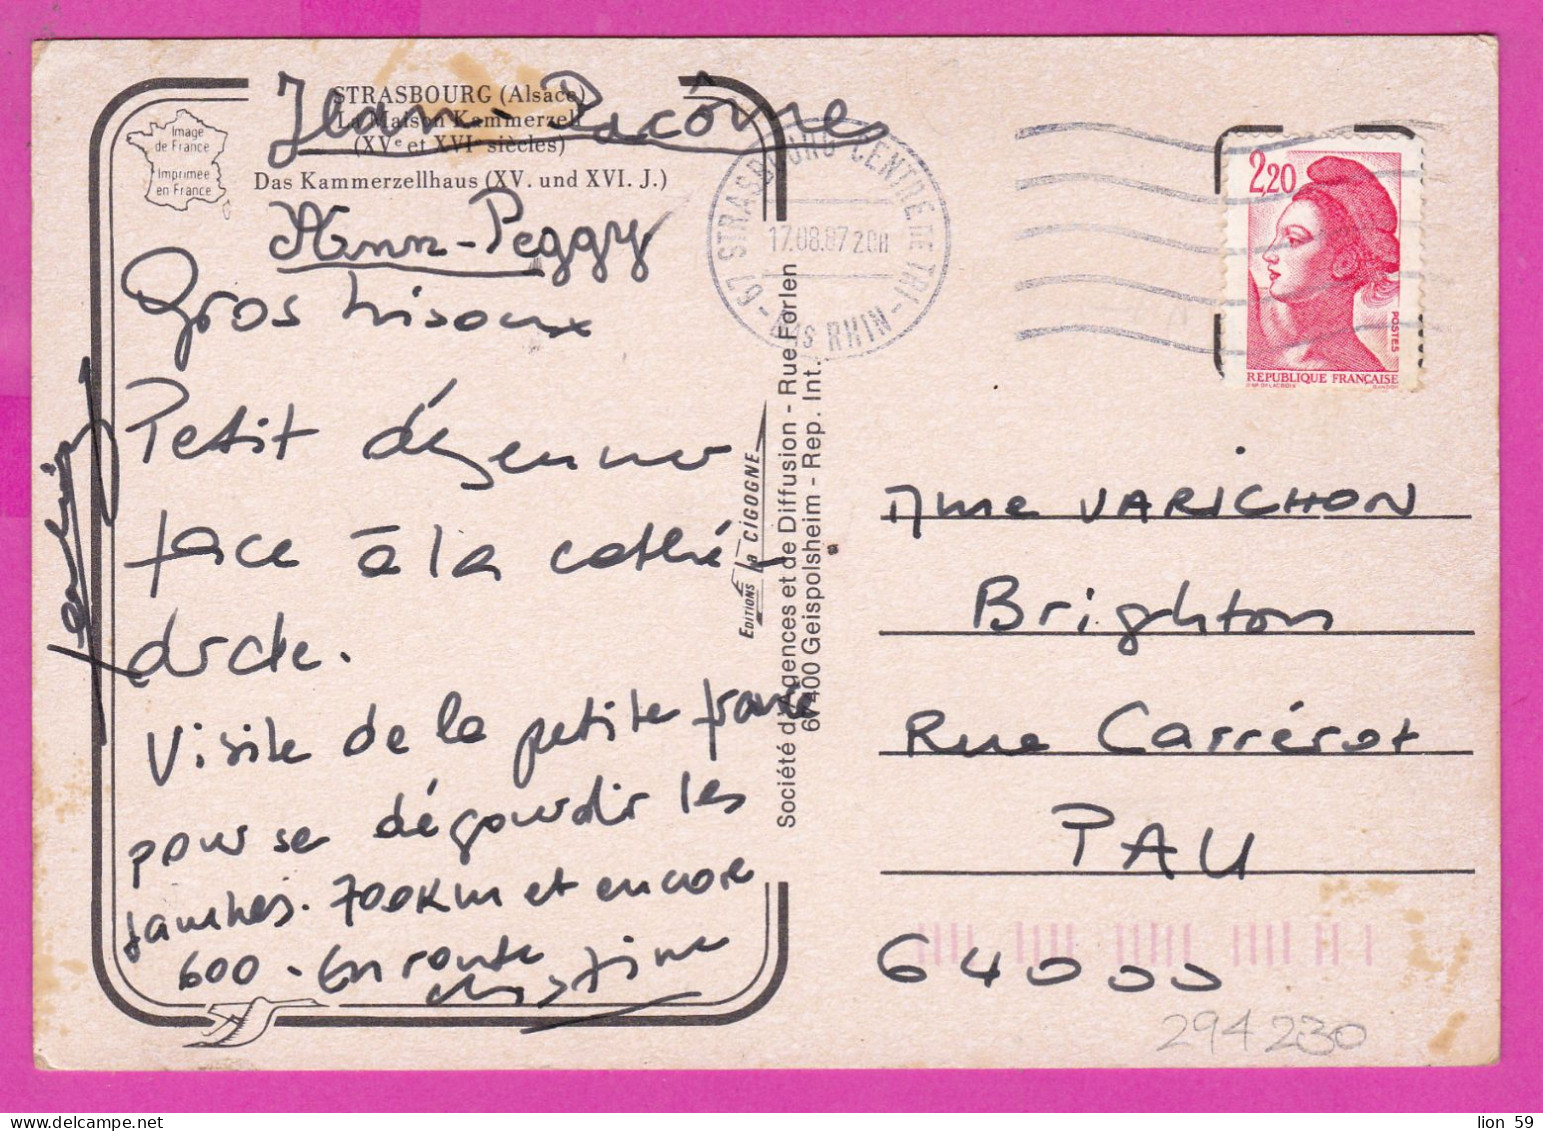 STRASBOURG (Alsace)
La Maison Kammerzell
(XVe et XVIe siècles)
Das Kammerzellhaus (XV. und XVI. J.)
Image
de France
Imprimée
en France
Jean-Pacôme
Ann-Peggy
Gros bisoux
Petit déjeuner
face à la cathé-
drale.
Visite de la petite france
pour se dégourdir les
jambes. 700Km et encore
600 - En route
Christine
EDITIONS La CIGOGNE
Société d'Agences et de Diffusion - Rue Forlen
67400 Geispolsheim - Rep. Int.
67 STRASBOURG CENTRE DE TRI - BAS RHIN -
17.08.87 20H
2,20
POSTES
REPUBLIQUE FRANÇAISE
Mme VARICHON
Brighton
Rue Carrérot
PAU
64000
294230
lion 59